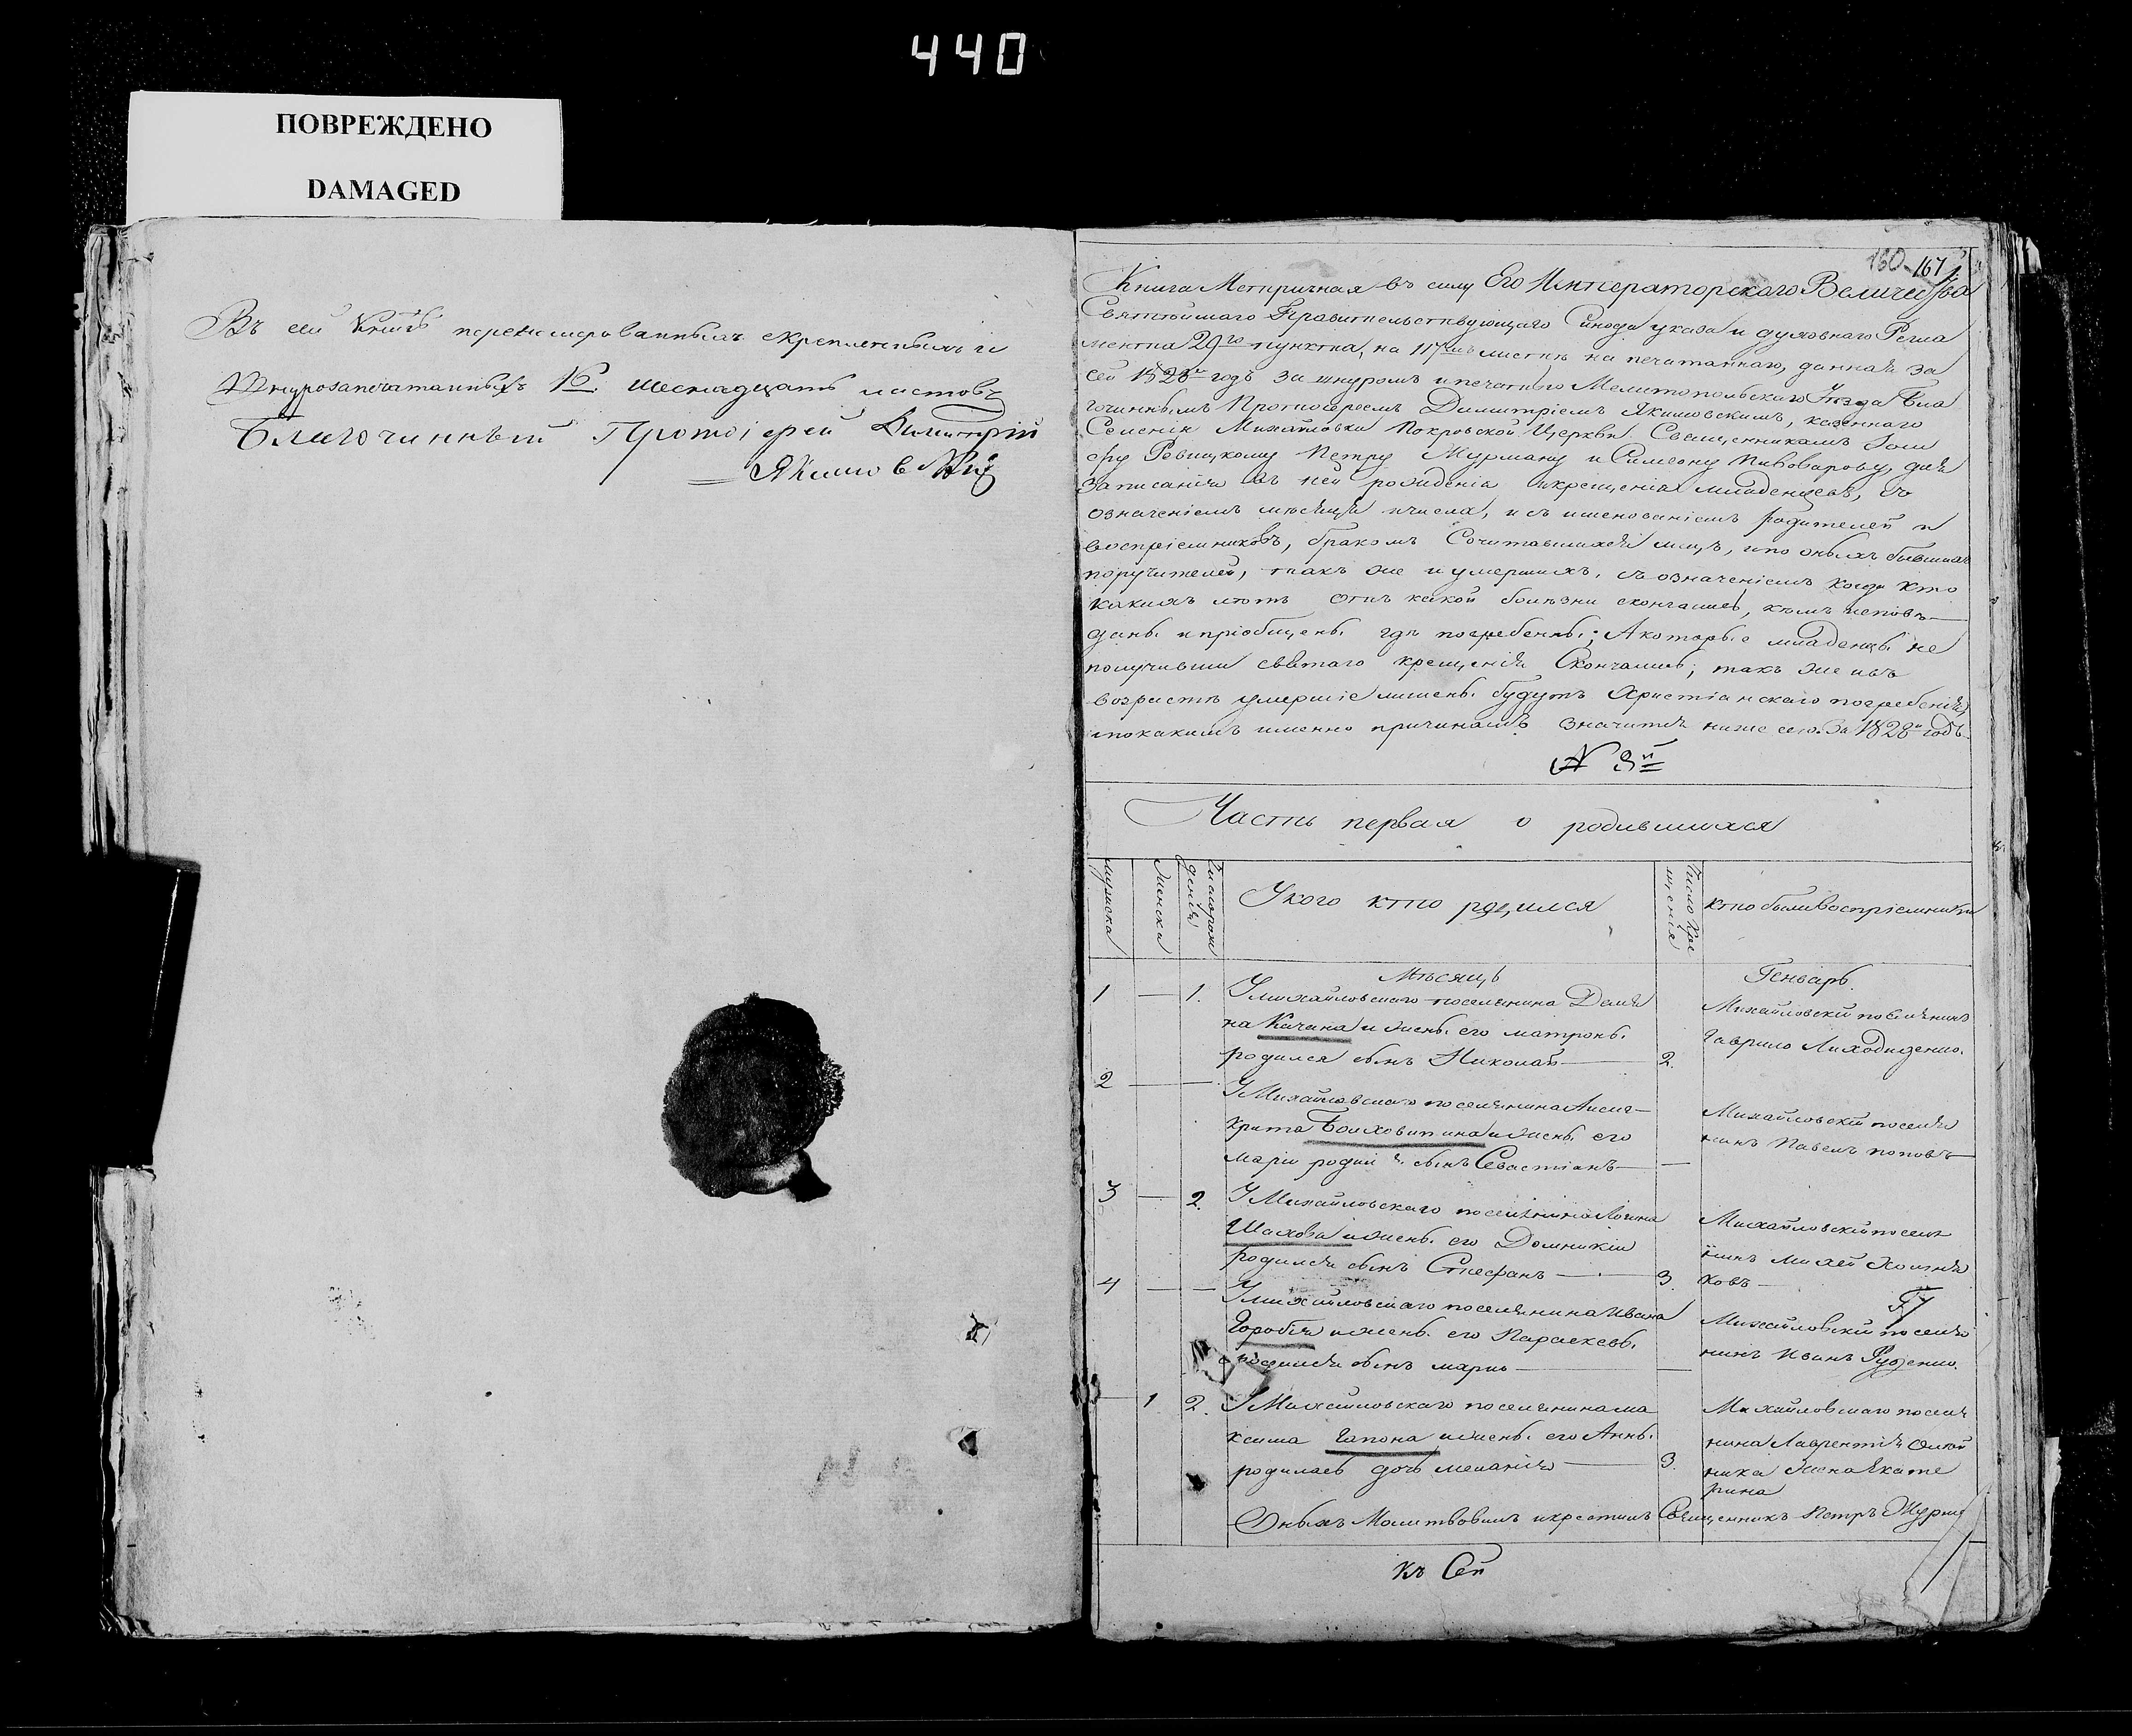 440
ПОВРЕЖДЕНО
DAMAGED
Въ сей Книгѣ перенумерованныхъ скрепленныхъ и
Шнурозапечатанныхъ 16. шеснадцать листовъ
Благочинный Протоіерей Димитрій
Якимовскій
160 167
Книга Метричная въ силу Его Императорскаго Величества
Святѣйшаго Правительствующаго Синода указа и духовнаго Регла
мента 29го пункта, на 117мъ листѣ на печатаннаго, данная за
сей 1828й годъ за шнуромъ и печатью Мелитопольскаго Уезда Бла
гочиннымъ Протоіереемъ Димитріемъ Якимовскимъ, казеннаго
Селенія Михайловки Покровской Церкви Священникамъ
Ревицкому Петру Журману и Симеону Пивоварову, для
записанія въ ней рожденія и крещенія младенцевъ, съ
означеніемъ месяця и числа, и съ именованіемъ родителей и
воспріемниковъ, бракомъ Сочитавшихся лицъ, и по оныхъ бывшихъ
поручителей, такъ же и умершихъ, съ означеніемъ когда кто
какихъ летъ отъ какой болѣзни скончались, кемъ исповѣ
даны и пріобщены где погребенны; А которые младенцы не
получивши святаго крещенія Скончались; такъ же и въ
возрастѣ умершіе лишены будутъ Христіанскаго погребенія,
и по какимъ именно причинамъ значится ниже сего. За 1828й годъ.
№ 3й
Часть первая о родившихся
мужска
женска
Число рож
денія
У кого кто родился
Число кре
щенія
кто были воспріемники
Мѣсяцъ Генварь.
1 — 1. У михайловскаго поселянина Демя
на Качана и жены его матроны
родился сынъ Николай — 2.
Михайловскій поселянинъ
Гаврило Лиходиденко.
2 — — У Михайловскаго поселянина Асин
крита Болховитина и жены его
маріи родился сынъ Севастіанъ —
Михайловскій поселя
нинъ Павелъ поповъ
3 — 2. У Михайловскаго поселянина Логина
Шахова и жены его Домникіи
родился сынъ Стефанъ — 3.
Михайловскій поселя
нинъ Михей Холодня
ковъ
4 — — У михайловскаго поселянина Ивана
Горобія и жены его Параскевы
родился сынъ марко —
Михайловскій поселя
нинъ Иванъ Руденко.
— 1 2. У Михайловскаго поселянина ма
ксима Гапона и жены его Анны
родилась дочь меланія — 3.
Михайловскаго поселя
нина Лаврентія Олей
ника жена Екате
рина
Оныхъ Молитвовалъ и крестилъ Священникъ Петръ Журма
Къ Сей